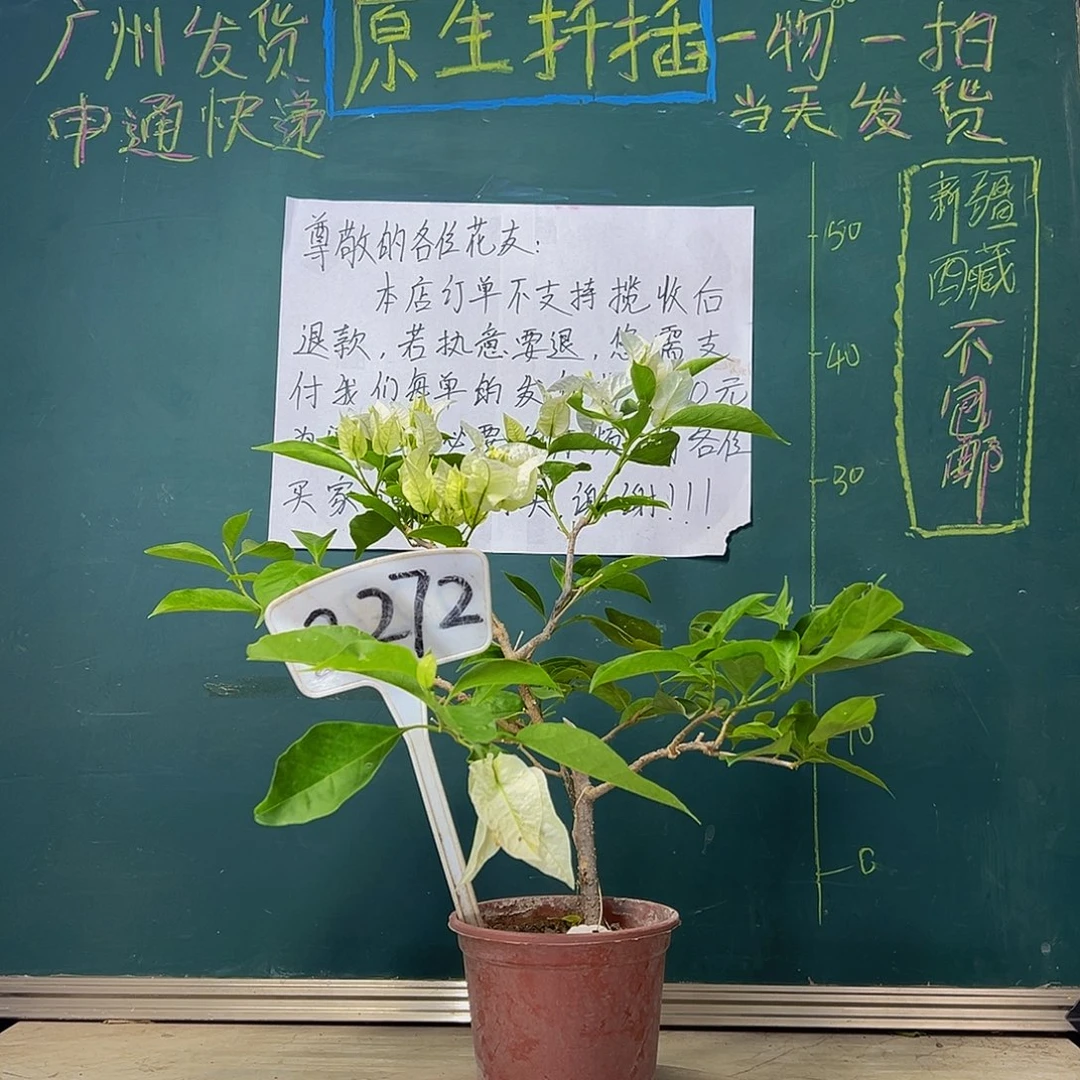 广州发货
原生扦插
一物一拍
申通快递
当天发货
尊敬的各位花友:
本店订单不支持揽收后
退款,若执意要退,您需支
付我们每单的发 0元
必要 各位
买家 谢谢!!!
50
40
30
10
0
新疆
西藏
不包邮
2272